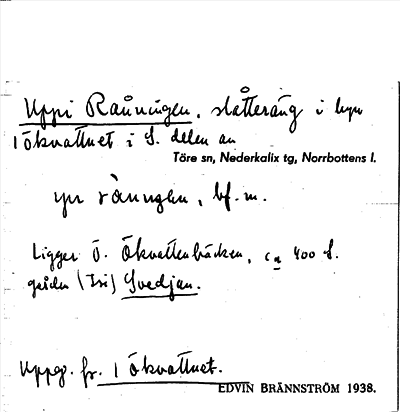 Uppi Rauningen, slåtteräng i byn
1 Ökvattnet i S. delen av
Töre sn, Nederkalix tg, Norrbottens l.
bf. m.
Ligger Ö. Ökvattenbäcken, ca 400 S.
gården (Isi) Svedjan.
Uppg. fr. 1 Ökvattnet.
EDVIN BRÄNNSTRÖM 1938.